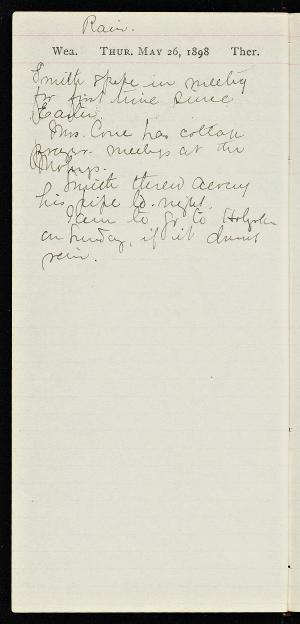 Rain.
Wea. THUR. MAY 26, 1898 Ther.
Smith spoke in meeting
for first time since
Easter.
Mrs. Cone has cottage
prayer meetings at the
Smith threw away
his pipe to-night.
I am to go to Holyoke
on Sunday, if it doesnt
rain.